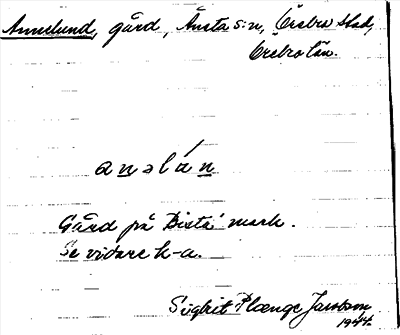 Annelund, gård, Ånsta s:n, Örebro stad,
Örebro län.
anəlán
Gård på Bista mark.
Se vidare h-a.
Sigbrit Plænge Jacobson
1944.